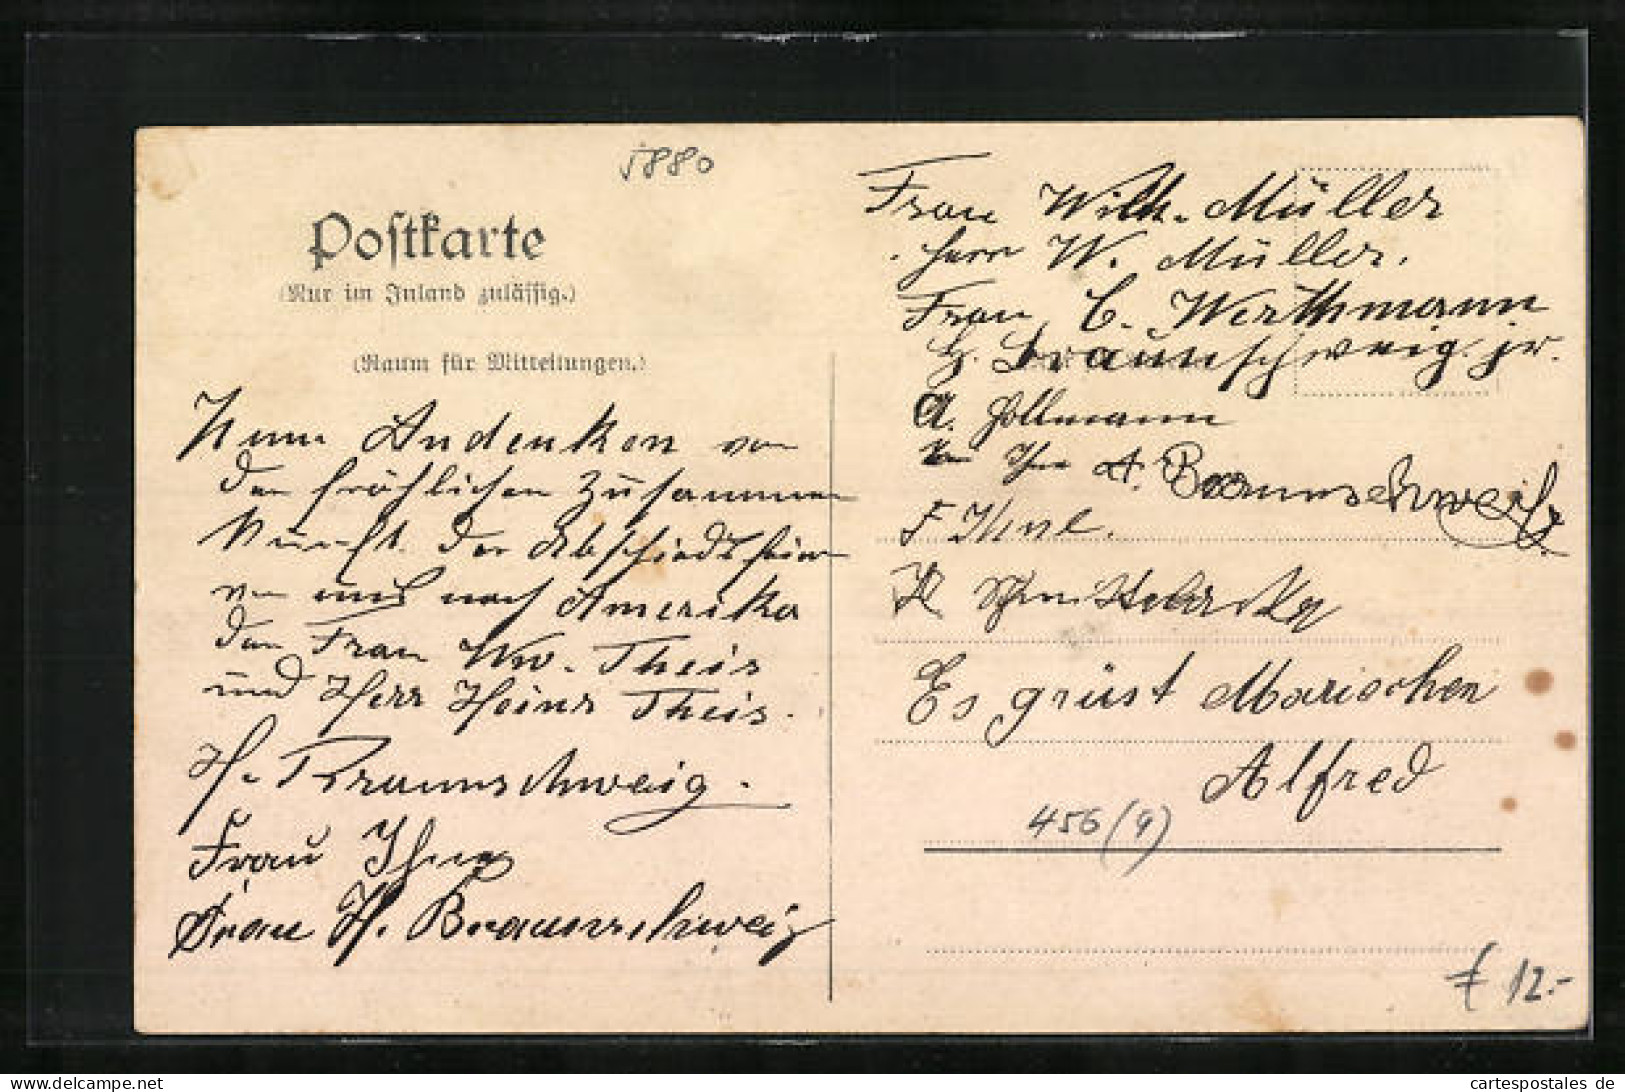 5880
Postkarte
(Nur im Inland zulässig.)
(Raum für Mitteilungen.)
Zum Andenken von
den fröhlichen Zusammen
kunft. der Abschiedsfeier
von uns nach Amerika
den Frau Ww. Theis
und Herr Heinr Theis.
H. Braunschweig.
Frau
Frau H. Braunschweig
Frau Wilh. Müller
Herr W. Müller.
Frau C. Werthmann
H. Braunschweig jr.
A. Hollmann
A. Braunschweig
F.
H
Es grüst Mariechen
Alfred
456 (9)
€ 12.-
cartespostales de
cartespostales.de